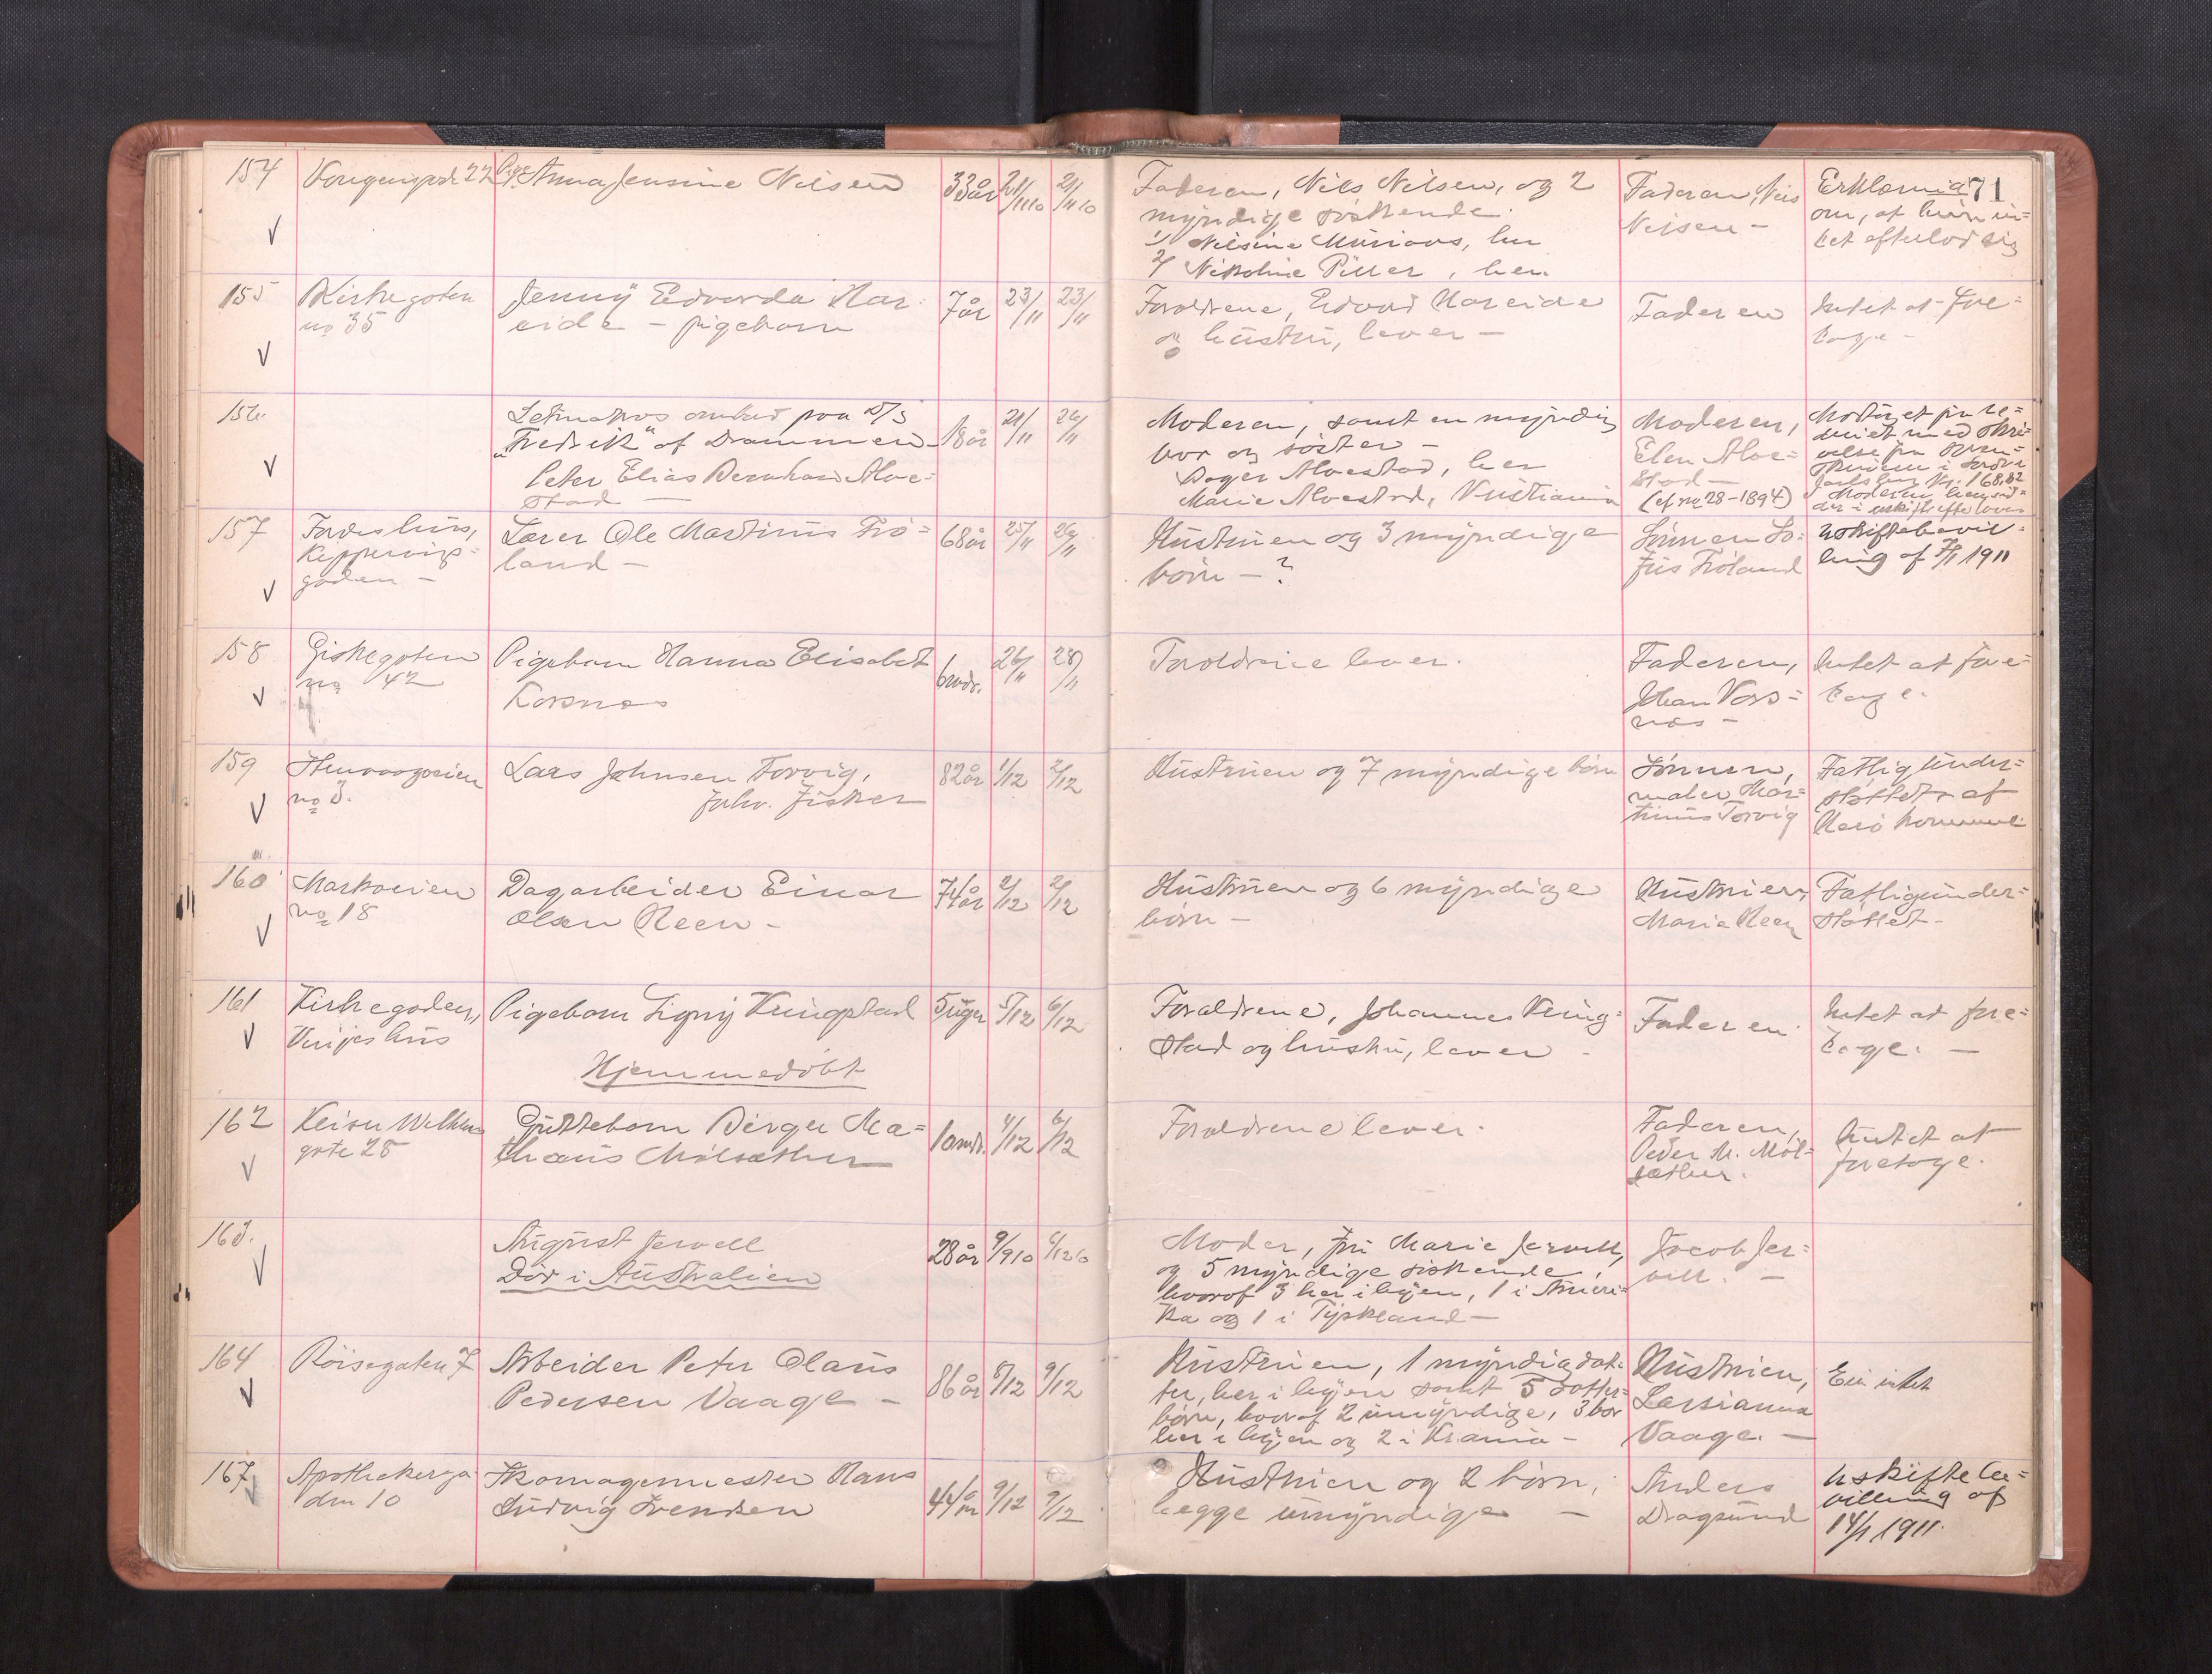 71
154
22 Pige Anna Jensine Nilsen
33 år 21/11 10 21/11 10
Faderen, Nils Nilsen, og 2
myndige söskende.
1/ Nilsine, her
2/ Nikoline, her
Faderen, Nils
Nilsen -
Erklæring
om, at hun in=
tet efterlod sig
155
Kirkegaten
no 35
Jenny Edvarda Har=
eide - pigebarn
7 år 23/11 23/11
Forældrene, Edvard Hareide
og hustru, lever -
Faderen
Intet at fore=
tage -
156.
Letmatros ombord paa D/S
"Fredrik" af Drammen
Peter Elias Bernhard Alve=
stad -
18 år 21/11 26/11
Moderen, samt en myndig
bror og söster -
Alvestad, her
Marie Alvestad, Kristiania
Moderen,
Elen Alve=
stad -
(cf no 28-1894)
157
hus,
Kipperviks=
gaden -
Lærer Ole Martinus Frö=
land -
68 år 25/11 26/11
Hustruen og 3 myndige
börn - ?
Sönnen So=
fus Fröland
Uskiftebevil=
ling af 1911
158
Giskegaten
no 42
Pigebarn Hanna Elisabet
Korsnes
6 mdr. 26/11 28/11
Forældrene lever.
Faderen,
Johan Kors=
nes -
Intet at fore=
tage.
159
no 3.
Lars Johnsen Torvig,
forhv. fisker
82 år 1/12 2/12
Hustruen og 7 myndige börn
Sönnen,
maler Mar=
tinus Torvig
Fattigunder=
støttet af
kommune
160
Markveien
no 18
Dagarbeider Einar
Olsen Reen -
74 år 2/12 2/12
Hustruen og 6 myndige
börn -
Hustruen,
Marie Reen
Fattigunder=
støttet -
161
Kirkegaden,
hus
Pigebarn Signy Kringstad
Hjemmedöbt
5 uger 5/12 6/12
Forældrene, Johannes Kring=
stad og hustru, lever -
Faderen
Intet at fore=
tage. -
162
Keiser Wilhelms
gate 28
Guttebarn Birger Ma=
thæus Molsæther
10 mdr. 4/12 6/12
Forældrene lever.
Faderen,
Peder M. Mol=
sæther.
Intet at
foretage.
163.
August Jervell
Död i Australien
28 år 9/9 10 6/12 10
Moder, fru Marie Jervell,
og 5 myndige söskende,
hvoraf 3 her i byen, 1 i Ameri=
ka og 1 i Tyskland -
Jacob Jer=
vell. -
164
Röisegaten 7
Arbeider Peter Olaus
Pedersen Vaage -
86 år 8/12 9/12
Hustruen, 1 myndig dat=
ter, her i byen samt 5 datter=
börn, hvoraf 2 umyndige, 3 bor
her i byen og 2 i Krania -
Hustruen,
Larsianna
Vaage. -
Eier intet
167
Apothekerga
den 10
Skomagermester Hans
Ludvig Svendsen
44 år 9/12 9/12
Hustruen og 2 börn,
begge umyndige -
Anders
Dragsund
Uskiftebe=
villing af
14/1 1911.